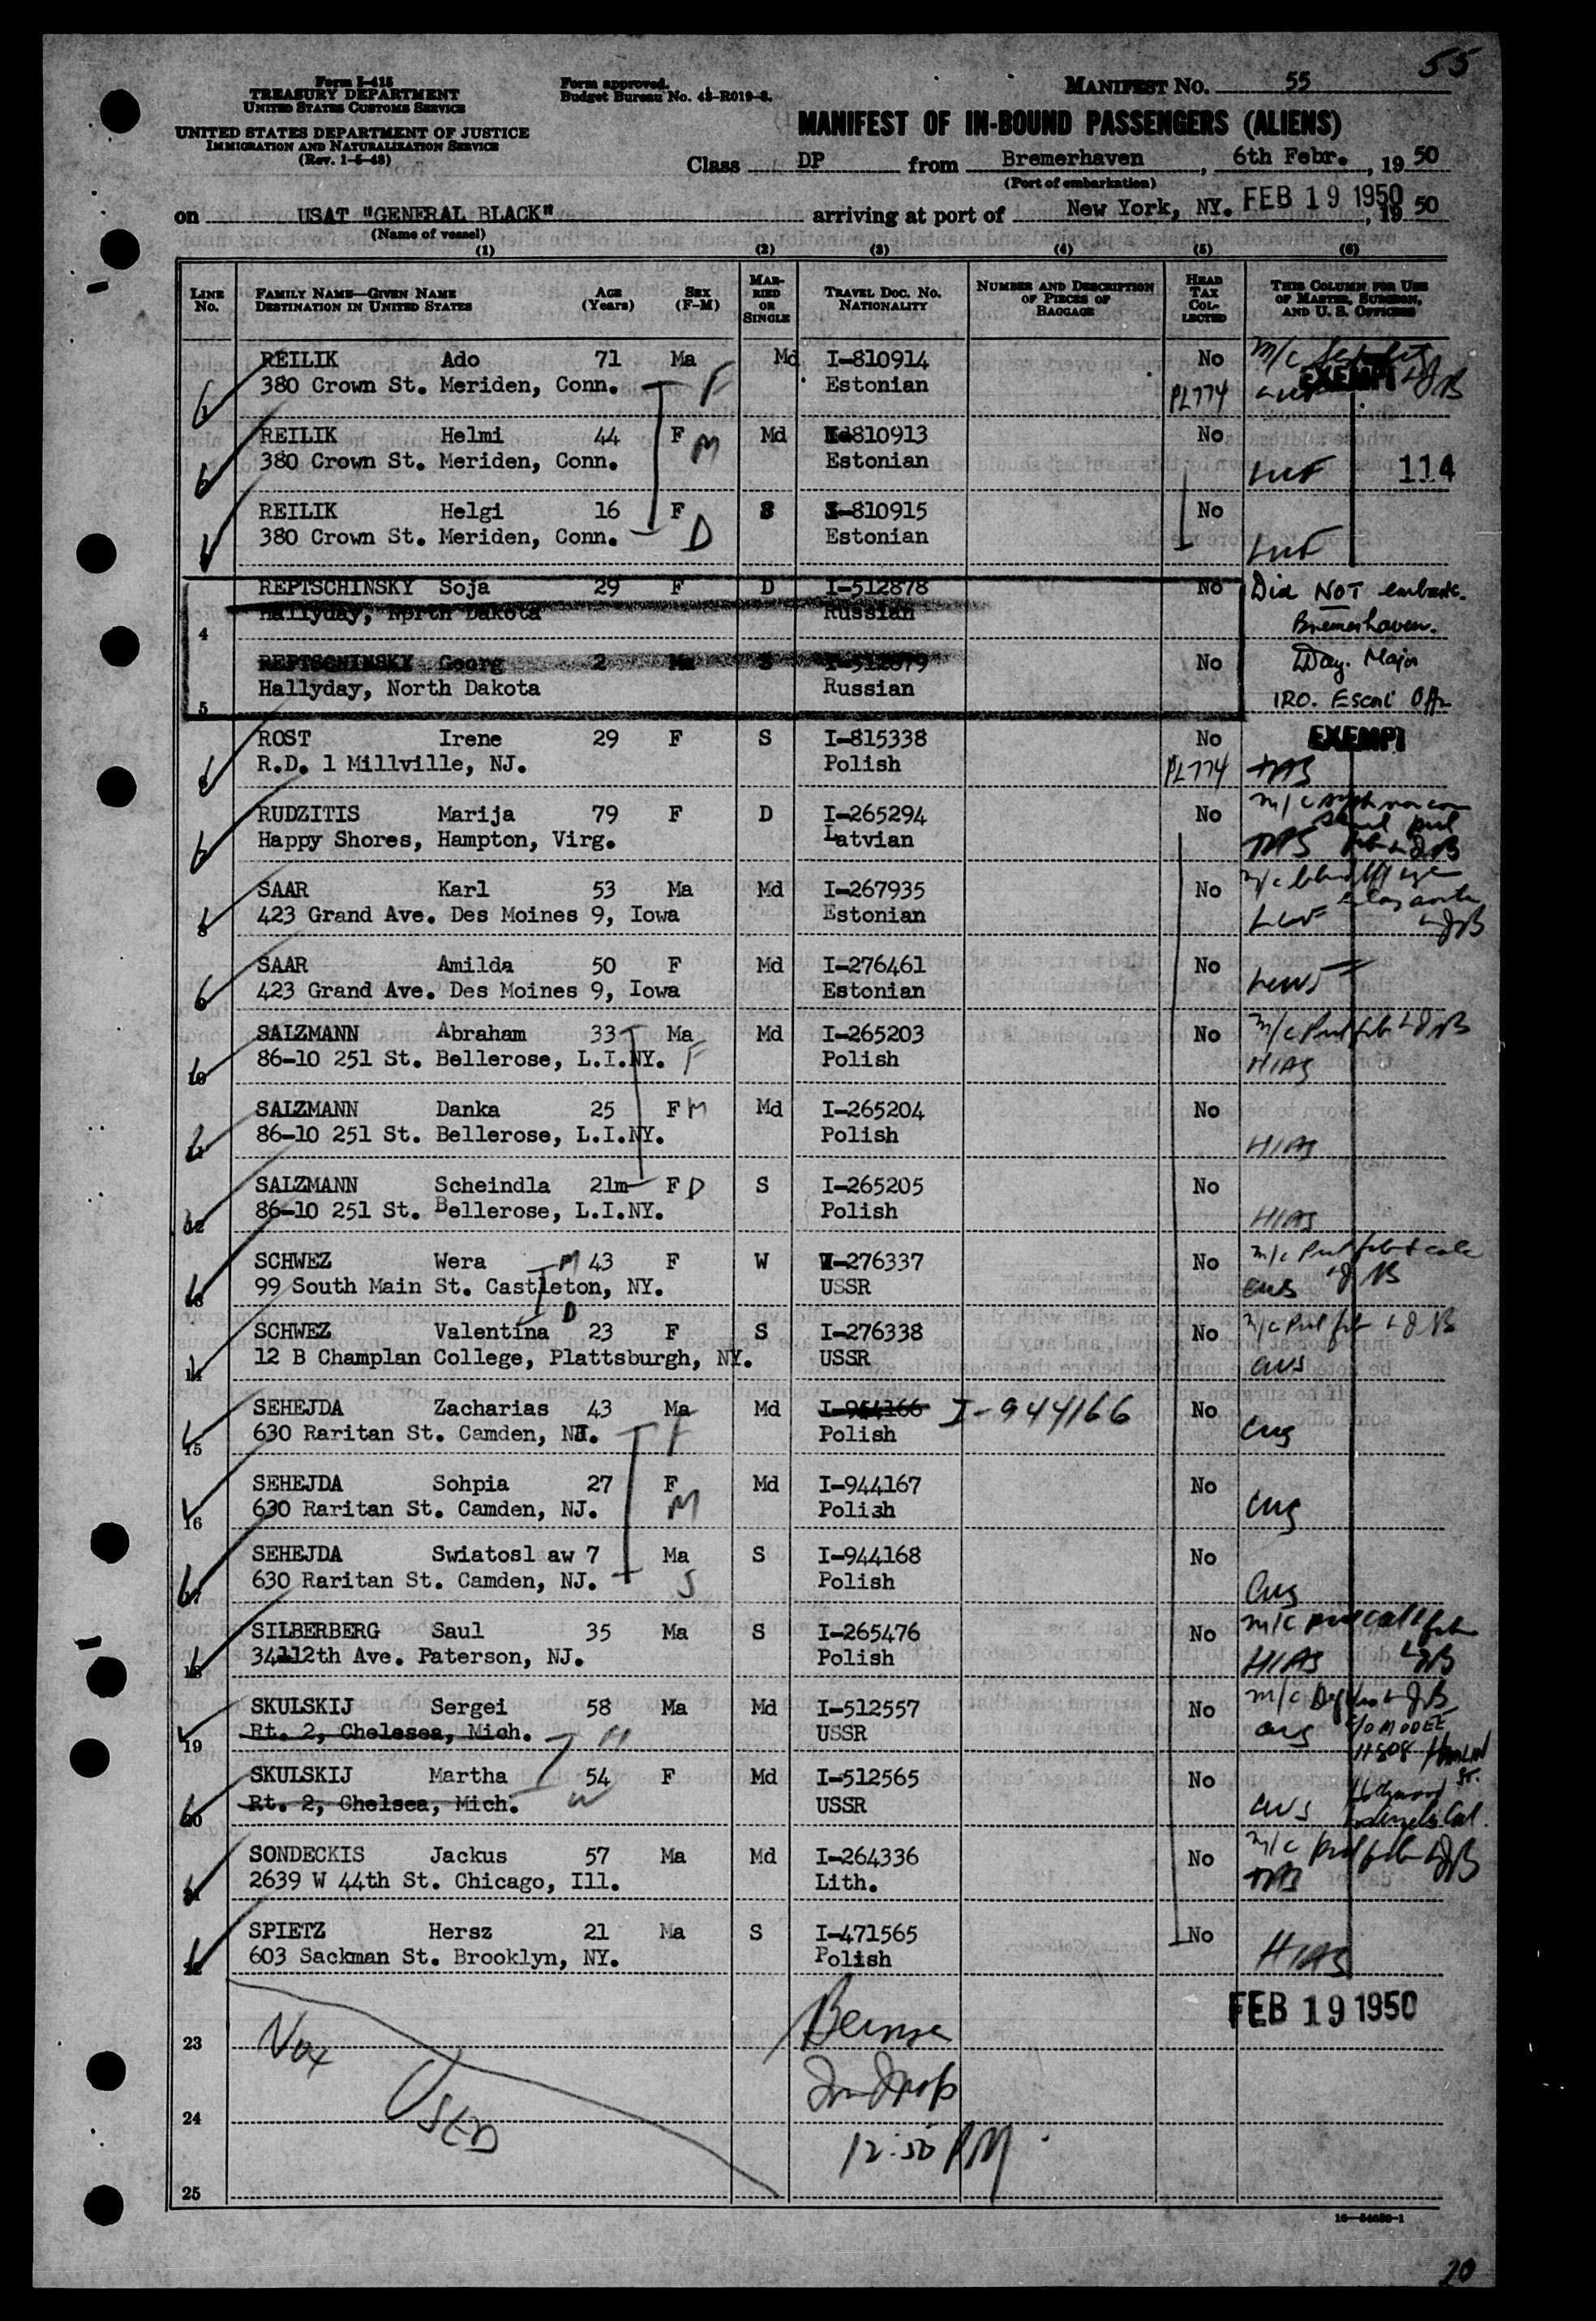 55
Form I-415
TREASURY DEPARTMENT
UNITED STATES CUSTOMS SERVICE
UNITED STATES DEPARTMENT OF JUSTICE
IMMIGRATION AND NATURALIZATION SERVICE
(Rev. 1-5-48)
Form approved.
Budget Bureau No. 43-R019-3.
MANIFEST NO. 55
MANIFEST OF IN-BOUND PASSENGERS (ALIENS)
Class DP from Bremerhaven, 6th Febr., 19 50
(Port of embarkation)
on USAT "GENERAL BLACK" arriving at port of New York, NY. FEB 19 1950, 19 50
(Name of vessel)
(1) (2) (3) (4) (5) (6)
LINE No. FAMILY NAME—GIVEN NAME DESTINATION IN UNITED STATES AGE (Years) SEX (F-M) MARRIED OR SINGLE TRAVEL DOC. NO. NATIONALITY NUMBER AND DESCRIPTION OF PIECES OF BAGGAGE HEAD TAX COLLECTED THIS COLUMN FOR USE OF MASTER, SURGEON, AND U. S. OFFICERS
REILIK Ado 71 Ma Md I-810914 No m/c
380 Crown St. Meriden, Conn. F Estonian PL774 EXEMPT
REILIK Helmi 44 F M Md 810913 No
380 Crown St. Meriden, Conn. Estonian 114
REILIK Helgi 16 F S 810915 No
380 Crown St. Meriden, Conn. D Estonian
REPTSCHINSKY Soja 29 F D I-512878 No Did NOT embark.
4 Hallyday, North Dakota Russian Bremerhaven.
REPTSCHINSKY Georg 2 Ma S I-512879 No Major
5 Hallyday, North Dakota Russian IRO. Escort Offr
ROST Irene 29 F S I-815338 No EXEMPT
R.D. 1 Millville, NJ. Polish PL774
RUDZITIS Marija 79 F D I-265294 No m/c
Happy Shores, Hampton, Virg. Latvian
SAAR Karl 53 Ma Md I-267935 No m/c
8 423 Grand Ave. Des Moines 9, Iowa Estonian
SAAR Amilda 50 F Md I-276461 No
423 Grand Ave. Des Moines 9, Iowa Estonian
SALZMANN Abraham 33 Ma Md I-265203 No m/c
10 86-10 251 St. Bellerose, L.I.NY. F Polish HIAS
SALZMANN Danka 25 F M Md I-265204 No
86-10 251 St. Bellerose, L.I.NY. Polish HIAS
SALZMANN Scheindla 21m F D S I-265205 No
12 86-10 251 St. Bellerose, L.I.NY. Polish HIAS
SCHWEZ Wera M 43 F W I-276337 No m/c
99 South Main St. Castleton, NY. USSR
D
SCHWEZ Valentina 23 F S I-276338 No m/c
14 12 B Champlan College, Plattsburgh, NY. USSR
SEHEJDA Zacharias 43 Ma Md I-944166 I-944166 No
15 630 Raritan St. Camden, NJ. F Polish
SEHEJDA Sohpia 27 F Md I-944167 No
16 630 Raritan St. Camden, NJ. M Polish
SEHEJDA Swiatosl aw 7 Ma S I-944168 No
630 Raritan St. Camden, NJ. S Polish
SILBERBERG Saul 35 Ma S I-265476 No m/c
34112th Ave. Paterson, NJ. Polish HIAS
SKULSKIJ Sergei 58 Ma Md I-512557 No m/c
19 Rt. 2, Chelesea, Mich. H USSR
SKULSKIJ Martha 54 F Md I-512565 No
20 Rt. 2, Chelsea, Mich. W USSR
SONDECKIS Jackus 57 Ma Md I-264336 No m/c
21 2639 W 44th St. Chicago, Ill. Lith.
SPIETZ Hersz 21 Ma S I-471565 No
22 603 Sackman St. Brooklyn, NY. Polish HIAS
FEB 19 1950
23
24
USED
12:50 PM
25
20